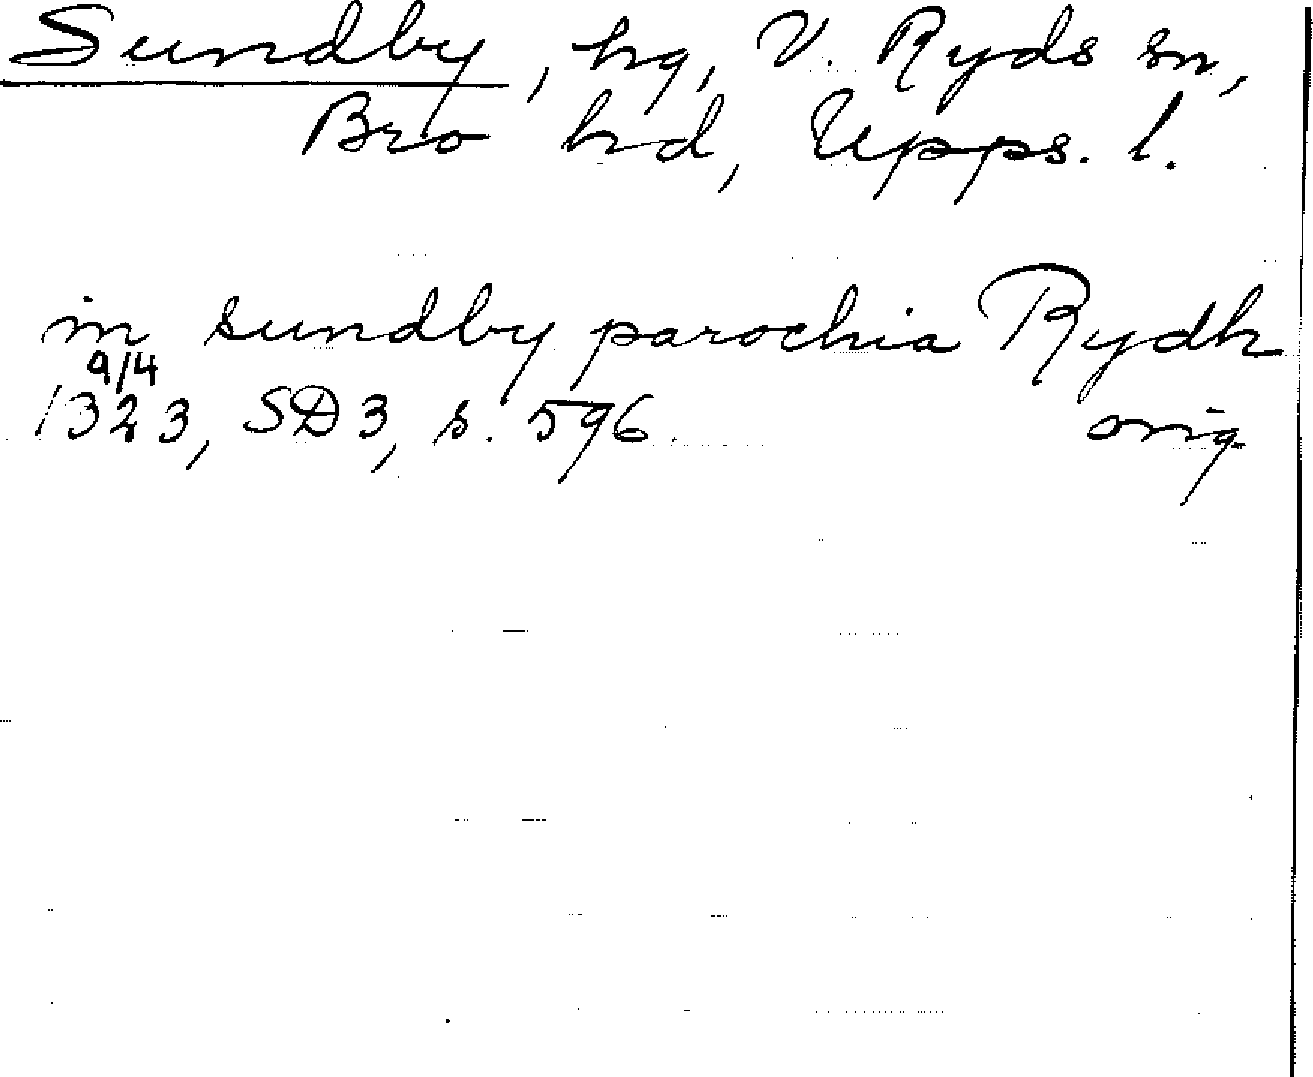 Sundby, hg, V. Ryds sn,
Bro hd, Upps. l.
in sundby parochia Rydh
9/4
1323, SD3, s. 596. orig